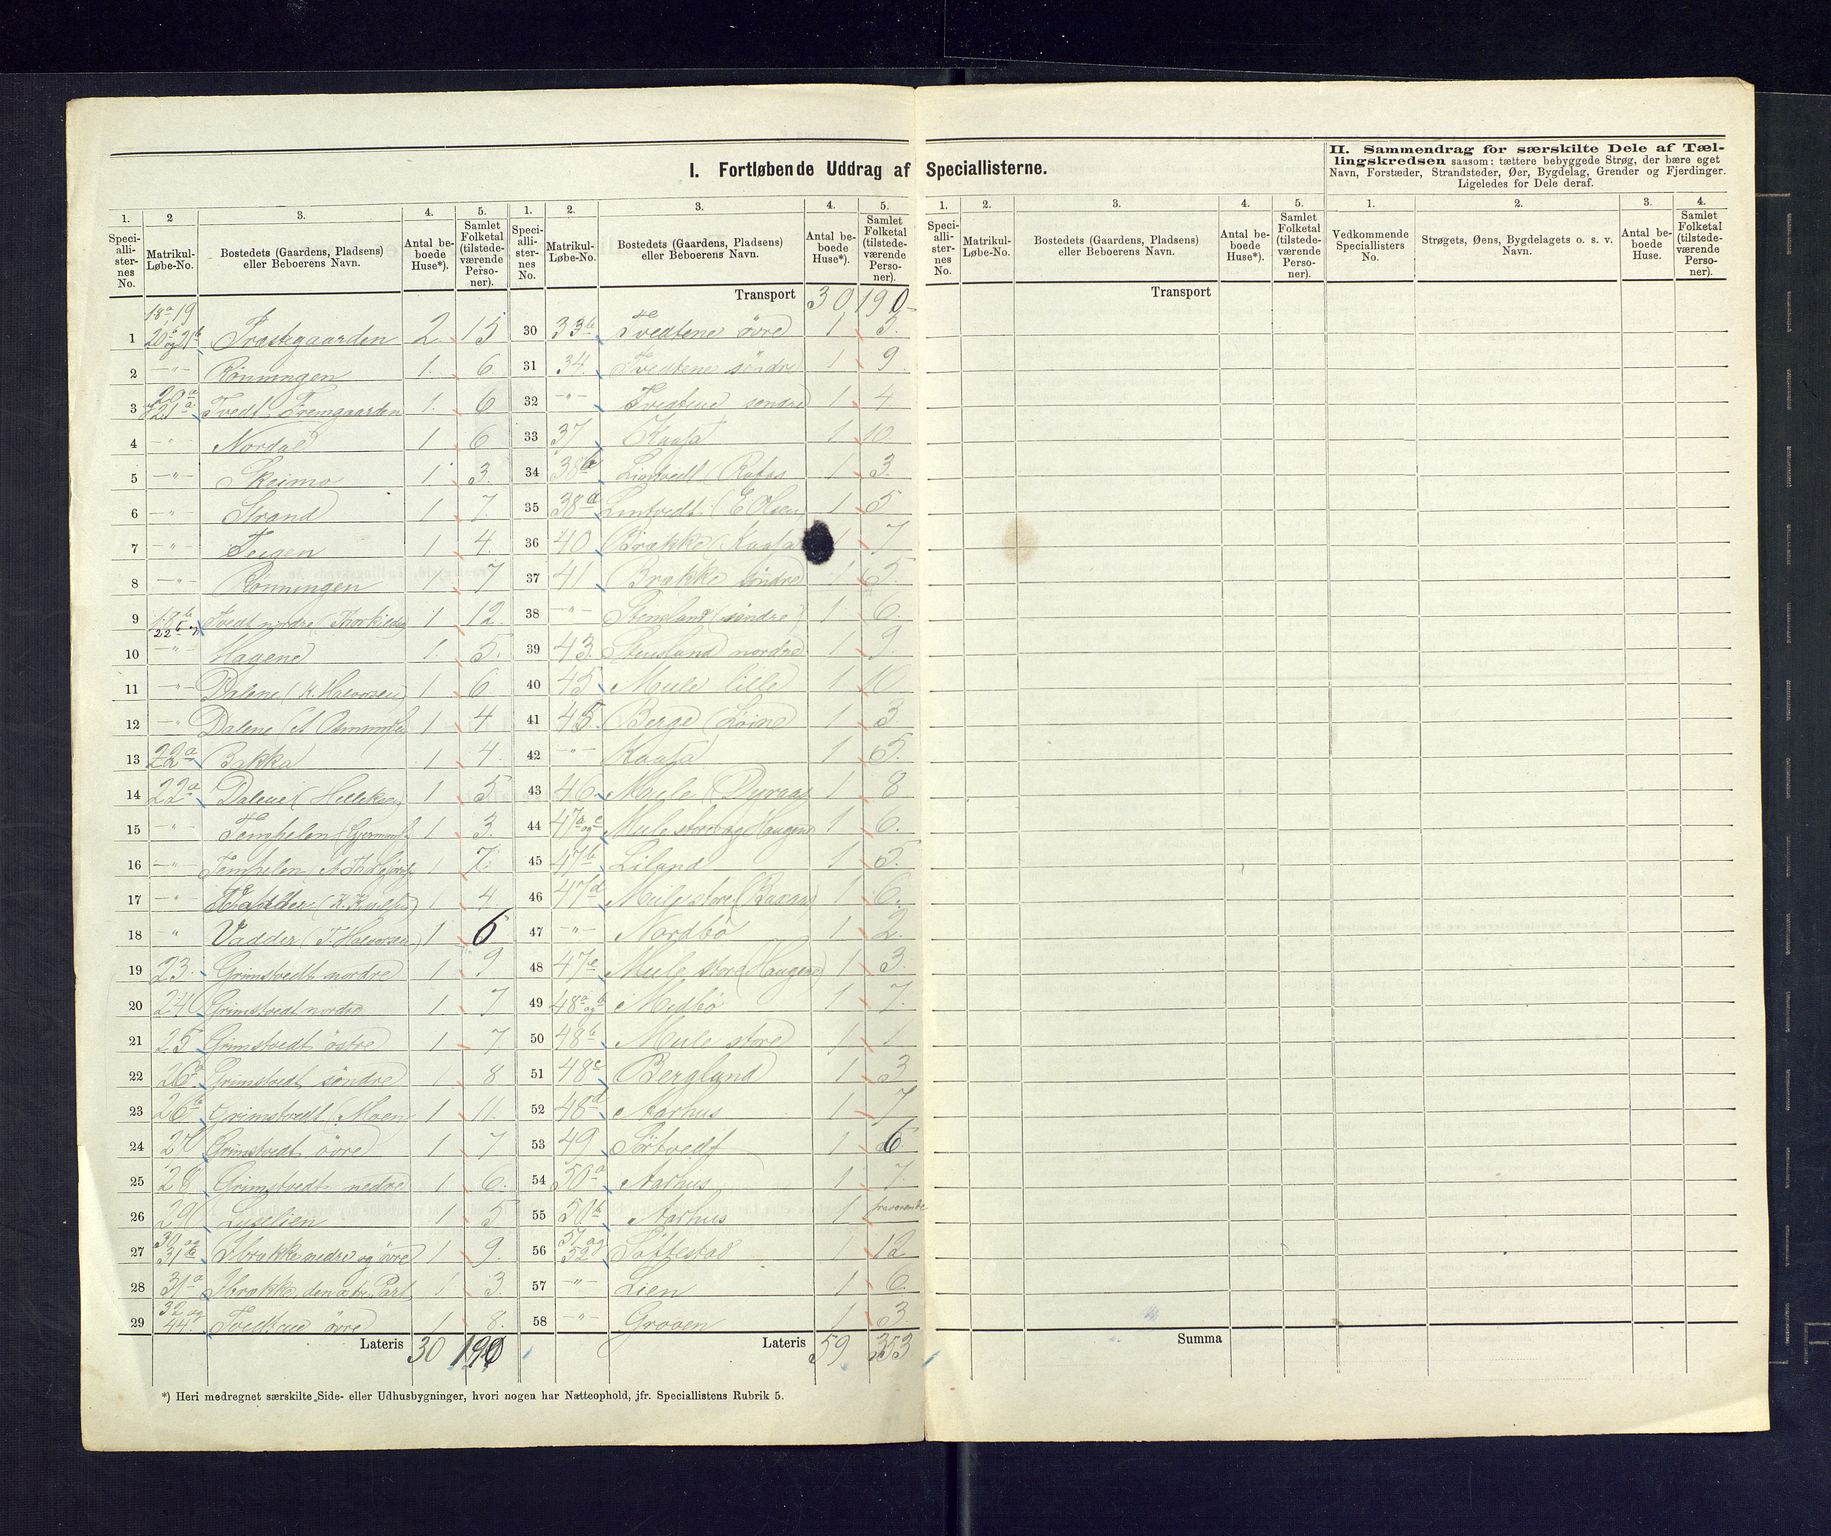 I. Fortløbende Uddrag af Speciallisterne.
II. Sammendrag for særskilte Dele af Tæl-
lingskredsen saasom: tættere bebyggede Strøg, der bære eget
Navn, Forstæder, Strandsteder, Øer, Bygdelag, Grender og Fjerdinger.
Ligeledes for Dele deraf.
1. 2 3. 4. 5.
Speciallisternes No. Matrikul-Løbe-No. Bostedets (Gaardens, Pladsens) eller Beboerens Navn. Antal beboede Huse*). Samlet Folketal (tilstedeværende Personer).
18a 19
1 20b og 21b Præstegaarden 2 15
2 —"— Rønningen 1. 6.
3 20a 21a Tvedt Fremgaarden 1. 6
4 —"— Nordal 1 6
5 —"— Skeimo 1. 3.
6 —"— Strand 1 7.
7 —"— Teigen 1 4.
8 —"— Rønningen 1 7
9 18b 22b Tvedt nordre (Thorkilds 1 12.
10 —"— Hagene 1. 5.
11 —"— Dalene (K. Halvorsen) 1 6
12 —"— Dalene 1 4
13 22a Bakka 1 4.
14 22a Dalene (Helleksen) 1 5
15 —"— Temhelen 1 3.
16 —"— Temhelen 1 7.
17 —"— Vadder 1 4
18 " Vadder (T. Halvorsen) 1 6
19 23. Grimstvedt nordre 1 9
20 24 Grimstvedt nordre 1. 7
21 25 Grimstvedt østre 1 7
22 26a Grimstvedt søndre 1 8
23 26b Grimstvedt (Moen 1 11.
24 27 Grimstvedt øvre 1 7
25 28 Grimstvedt nedre 1 6.
26 29 Lyselien 1 5
27 30 og 31b Ibrekke nedre og øvre 1 9.
28 31a Ibrekke, den øvre Part 1 3.
29 32 og 44. Tvedtene øvre 1 8.
Lateris 30 190
1. 2. 3. 4. 5.
Speciallisternes No. Matrikul-Løbe-No. Bostedets (Gaardens, Pladsens) eller Beboerens Navn. Antal beboede Huse*). Samlet Folketal (tilstedeværende Personer).
Transport 30 190
30 33b Tvedtene øvre 1 3.
31 34. Tvedtene søndre 1 9.
32 —"— Tvedtene søndre 1 4
33 37 Kaasa 1 10.
34 38b Lintvedt (Rofas 1 3.
35 38a Lintvedt (E Olsen 1 5
36 40 Brække (Kaasa 1 7
37 41 Brække søndre 1 5.
38 —"— Stensland (søndre) 1 6.
39 43. Stensland nordre 1 9.
40 45 Mule lille 1 10
41 45. Berge (Loine) 1 3.
42 —"— Kaasa 1 5.
43 46 Mule (Dyraas 1 8
44 47a og c Mule store og Haugen 1 6.
45 47b Liland 1 5.
46 47d Mule store (Baraas) 1 6.
47 —"— Nordbø 1 2.
48 47e Mule store (Haugene) 1 3.
49 48a og b Midbø 1 7.
50 48b Mule store 1 1
51 48c Bergland 1 3
52 48d Aarhus 1 7
53 49 Sørtvedt 1 6.
54 50a Aarhus 1 7.
55 50b Aarhus 1 fraværende
56 51 og 52 Søftestad 1 12
57 —"— Lien 1 6.
58 —"— Groven 1 3
Lateris 59 353
*) Heri medregnet særskilte Side- eller Udhusbygninger, hvori nogen har Natteophold, jfr. Speciallistens Rubrik 5.
1. 2. 3. 4. 5.
Speciallisternes No. Matrikul-Løbe-No. Bostedets (Gaardens, Pladsens) eller Beboerens Navn. Antal beboede Huse*). Samlet Folketal (tilstedeværende Personer).
Transport
Summa
1. 2. 3. 4.
Vedkommende Speciallisters No. Strøgets, Øens, Bygdelagets o. s. v. Navn. Antal beboede Huse. Samlet Folketal (tilstedeværende Personer).